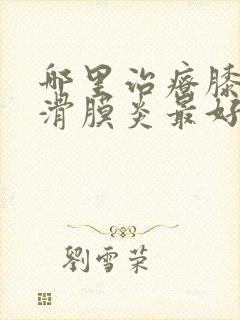 哪里治疗膝
滑膜炎最好
劉雪荣